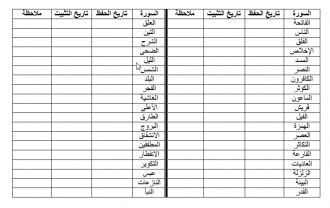 السورة تاريخ الحفظ تاريخ التثبيت ملاحظة السورة تاريخ الحفظ تاريخ التثبيت ملاحظة
الفاتحة العلق
الناس التين
الفلق الشرح
الإخلاص الضحى
المسد الليل
النصر الشمس
الكافرون البلد
الكوثر الفجر
الماعون الغاشية
قريش الأعلى
الفيل الطارق
الهمزة البروج
العصر الانشقاق
التكاثر المطففين
القارعة الانفطار
العاديات التكوير
الزلزلة عبس
البينة النازعات
القدر النبأ